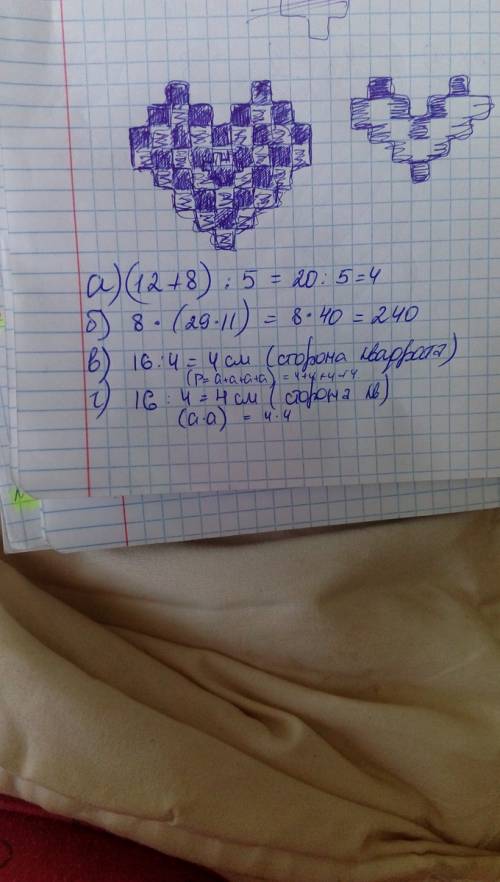 а) (12+8) : 5 = 20 : 5 = 4
б) 8 · (29·11) = 8·40 = 240
в) 16 : 4 = 4 см (сторона квадрата)
(P = а+а+а+а) = 4+4+4+4
г) 16 : 4 = 4 см (сторона кв)
(а·а) = 4·4